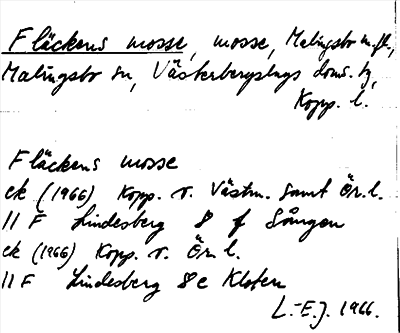 Fläckens mosse, mosse, Malingsbo m.fl.,
Malingsbo sn, Västerbergslags doms. tg,
Kopp. l.
Fläckens mosse
ek (1966) Kopp. r. Västm. samt Ör. l.
11 F Lindesberg 8 f Sången
ek (1966) Kopp. r. Ör. l.
11 F Lindesberg 8 e Kloten
L.-E.J. 1966.